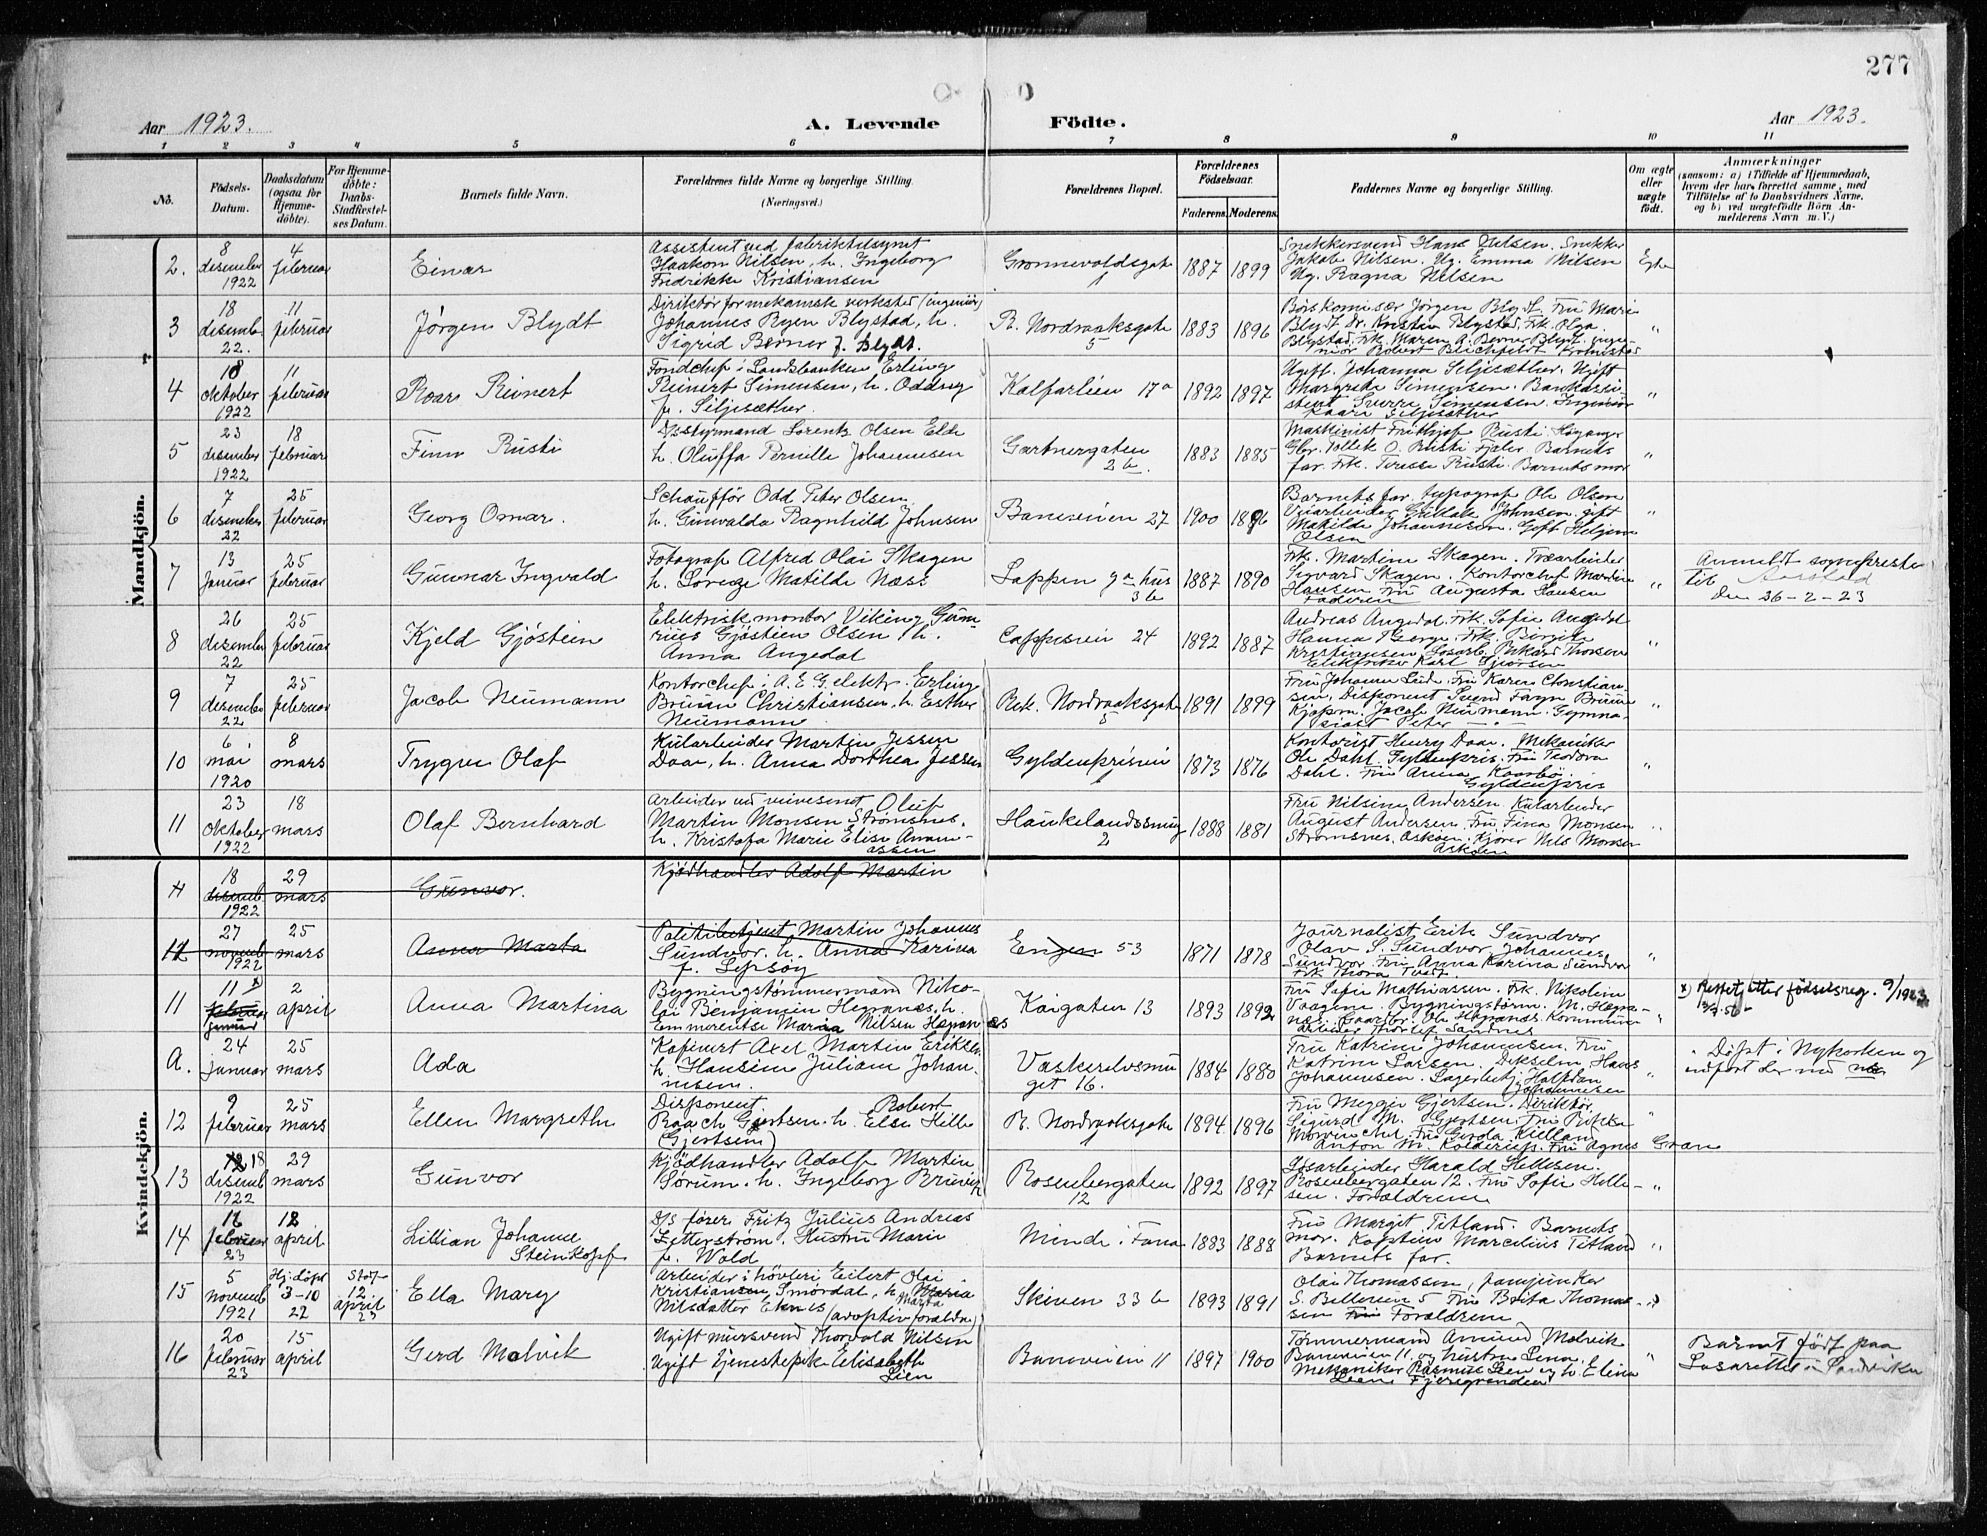 277
Aar 1923. A. Levende Födte. Aar 1923.
1 2 3 4 5 6 7 8 9 10 11
No. Födsels-Datum. Daabsdatum (ogsaa for Hjemme-döbte). For Hjemme-döbte: Daabs-Stadfæstel-ses Datum. Barnets fulde Navn. Forældrenes fulde Navne og borgerlige Stilling. (Næringsvei.) Forældrenes Bopæl. Forældrenes Födselsaar. Faderens. Moderens. Faddernes Navne og borgerlige Stilling. Om ægte eller uægte födt. Anmærkninger (saasom: a) i Tilfælde af Hjemmedaab, hvem der har forrettet samme, med Tilföielse af to Daabsvidners Navne, og b) ved uægtefödte Börn An-melderens Navn m. V.)
Mandkjön.
2. 8 desember 1922 4 februar Einar Assistent ved fabriktilsynet
Haakon Nilsen, h. Ingeborg
Fredrikke Kristiansen 1887 1899 Snekkersvend Hans Nilsen. Snekker
Jakob Nilsen. Ug. Emma Nilsen
Ug. Ragna Nilsen Egte
3 18 desemb. 22. 11 februar Jørgen Blydt Direktør for mekanisk verksted (ingeniør)
Johannes Ryen Blystad, h.
Sigrid Berner f. Blydt. R. Nordraaksgate 5 1883 1896 Jørgen Blydt. Fru Marie
Blydt. Dr. Kristen Blystad. Frk. Olga
Blystad. Frk. Maren A. Berner Blydt "
4 18 oktober 1922 11 februar Roar Reinert Fondchef i Landsbanken Erling
Reinert Simensen, h. Oddny
f. Siljesæther. Kalfarlien 17a 1892 1897 Ugift. Johanna Siljesæther. Ugift
Margrete Simensen. Bankassi-
stent Sverre Simensen. Ingeniør
Kaare Siljesæther "
5 23 desember 1922 18 februar Finn Rusti D/S styrmand Lorentz Olsen Elde
h. Oluffa Pernille Johannesen Gartnergaten 2b. 1883 1885 Maskinist Frithjof Rusti Høyanger
O. Rusti Fjaler. Barnets
far. Frk. Rusti. Barnets mor "
6 7 desember 22 25 februar Georg Omar. Schauffør Odd Peter Olsen
h. Gunvalda Ragnhild Johnsen 27 1900 1896 Barnets far. typograf Ole Olsen
Johnsen. gift
Matilde Johannesen. Gift
Olsen "
7 13 Januar 25 februar Gunnar Ingvald Fotograf Alfred Olai Skagen
h. Lovise Matilde Næss Lappen 9a hus 3b 1887 1890 Frk. Martine Skagen. Træarbeider
Sigvard Skagen. Kontorchef
Hansen Fru Augusta Hansen
Faderen " Anmeldt sogneprest
til Aarstad
den 26-2-23
8 26 desember 22 25 februar Kjeld Gjöstein Elektrisk montør Viking Gun-
Gjöstein Olsen, h.
Anna Angedal 24 1892 1887 Andreas Angedal. Frk. Sofie Angedal
Frk. Birgit
Kristiansen. Thorsen
Elektriker Karl "
9 7 desember 22 25 februar Jacob Neumann Kontorchef i A.E.G. elektr. Erling
Bruun Christiansen, h. Esther
Neumann Rik. Nordraaksgate 5 1891 1899 Fru Johanne Lid. Fru Karen Christian-
sen, Disponent Svend Bruun
Kjøpm. Jacob Neumann. Gymna-
siast Peter — " — "
10 6 mai 1920 8 mars Trygve Olaf Kularbeider Martin Jessen
Daae, h. Anna Dorthea Jessen Gyldenprisvei 1 1873 1876 Kontorist Henry Daae. Mekaniker
Ole Dahl. Gyldenpris. Fru Teodora
Dahl. Fru Anna
Gyldenpris "
11 23 oktober 1922 18 mars Olaf Bernhard Arbeider ved veivesenet Oluf
Martin Monsen Strømsnes,
h. Kristofa Marie Elise Aram-
assen Haukelandssmug 2 1888 1881 Fru Nilsine Andersen. Kularbeider
August Andersen. Fru Fina Monsen
Strømsnes. Askøen. Kjører Nils Monsen
Askøen "
Kvindekjön.
11 18 desemb. 1922 29 mars Gunvor. Kjødhandler Adolf Martin
12 27 novemb. 1922 25 mars Anna Marta Politibetjent Martin Johannes
Sundvor. h. Anna Karina
f. Lepsøy Engen 53 1871 1878 Journalist Erik Sundvor
Olav S. Sundvor. Johannes
Sundvor. Fru Anna Karina Sundvor
Frk. Thora "
11 11 x februar januar 2 april Anna Martina Bygningstømmermand Niko-
lai Benjamin Hegranes, h.
Emmerentse Maria Nilsen Hegranes Kaigaten 13 1893 1892 Fru Sofie Mathiassen. Frk. Nikoline
Vaagene. Bygningstørm. M. Hegra-
nes. Ole Hegranes. Kommune-
arbeider Thorlef Sandnes " x) Rettet etter fødselsreg. 9/1923
A. 24 januar 25 mars Ada Axel Martin Eriksen
h. Hansine Juliane Johan-
nesen. Vaskerelvsmu
get 16. 1884 1880 Fru Katrine Johannesen. Fru
Katrine Larsen. Hans
Johannesen. Lagerbetj. Halfdan
Johannesen " Døpt i Nykirken og
indført der med no
12 9 februar 25 mars Ellen Margrethe Disponent Robert
Raach Gjertsen. h. Else Helle
(Gjertsen) R. Nordraaksgate 1894 1896 Fru Meggie Gjertsen. Direktør
Sigurd M. Gjertsen. Fru
Fru Gerda Kielland
Anton Fr. Fru Agnes Gran "
13 12 18 desemb 1922 29 mars Gunvor Kjødhandler Adolf Martin
Sørum. h. Ingeborg Bruvik Rosenbergaten 12 1892 1897 Isarbeider Harald Hillesen.
Rosenbergaten 12. Fru Sofie Hille-
sen. Forældrene "
14 16 februar 23 12 april Lillian Johanne
Steinkopf D/S fører Fritz Julius Andreas
Zetterström. Hustru Marie
f. Wold Minde i Fana 1883 1888 Fru Margit Titland. Barnets
mor. Kaptein Marcelius Titland
Barnets far. "
15 5 novemb 1921 Hj. døpt 3-10 22 Stof 12 april 23 Ella Mary Arbeider i høvleri Eilert Olai
Kristiansen Smørdal, h. Maria Marta
Nilsdatter Eknes (adoptivforældre) Skiven 33 b 1893 1891 Olai Thomassen,
5 Fru Brita Thomas-
sen Fru Forældrene "
16 20 februar 23 15 april Gerd Molvik Ugift mursvend Thorvald Nilsen
Ugift tjenestepike Elisabeth
Lien Baneveien 11 1897 1900 Tømmermand Amund Molvik
Baneveien 11 og hustru Lena
Mekaniker Rasmus Lien og h. Elina
Lien " Barnet født paa
Lasarettet i Sandviken